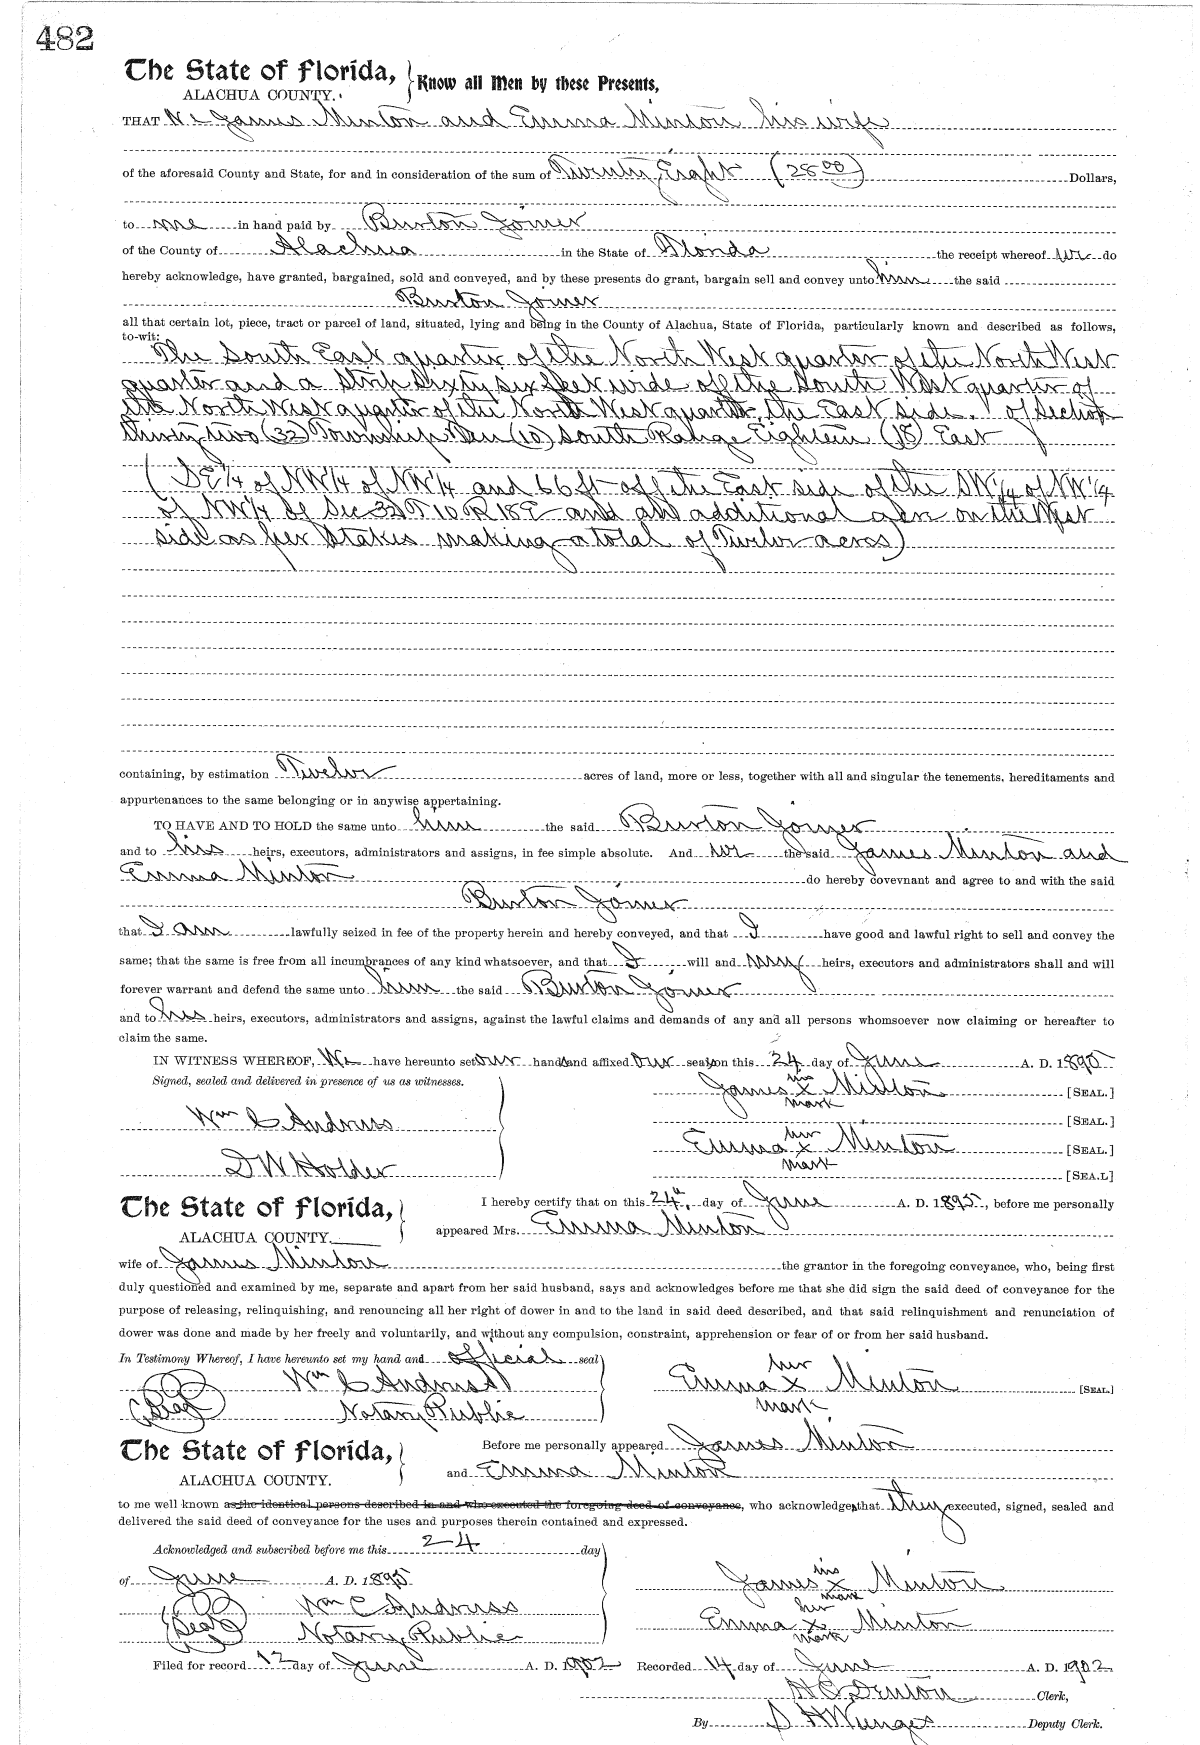 482
The State of Florida, Know all Men by these Presents,
ALACHUA COUNTY.
THAT We James Minton and Emma Minton his wife
of the aforesaid County and State, for and in consideration of the sum of Twenty Eight (28 00) Dollars,
to me in hand paid by Burton Joiner
of the County of Alachua in the State of Florida the receipt whereof we do
hereby acknowledge, have granted, bargained, sold and conveyed, and by these presents do grant, bargain sell and convey unto him the said
Burton Joiner
all that certain lot, piece, tract or parcel of land, situated, lying and being in the County of Alachua, State of Florida, particularly known and described as follows,
to-wit:
The South East quarter of the North West quarter of the North West
quarter and a Strih Sixty six feet wide off the South West quarter of
the North West quarter of the North West quarter, the East side. of Section
thirty two (32) Township Ten (10) South Range Eighteen (18) East
(SE 1/4 of NW 1/4 of NW 1/4 and 66 ft off the East side of the SW 1/4 of NW 1/4
of NW 1/4 of Sec 32 T 10 R 18 E and an additional acre on the West
side as per Stakes making a total of Twelve acres)
containing, by estimation Twelve acres of land, more or less, together with all and singular the tenements, hereditaments and
appurtenances to the same belonging or in anywise appertaining.
TO HAVE AND TO HOLD the same unto him the said Burton Joiner
and to his heirs, executors, administrators and assigns, in fee simple absolute. And we the said James Minton and
Emma Minton do hereby covevnant and agree to and with the said
Burton Joiner
that I am lawfully seized in fee of the property herein and hereby conveyed, and that I have good and lawful right to sell and convey the
same; that the same is free from all incumbrances of any kind whatsoever, and that I will and my heirs, executors and administrators shall and will
forever warrant and defend the same unto him the said Burton Joiner
and to his heirs, executors, administrators and assigns, against the lawful claims and demands of any and all persons whomsoever now claiming or hereafter to
claim the same.
IN WITNESS WHEREOF, We have hereunto set our hands and affixed our seals on this 24 day of June A. D. 1895
Signed, sealed and delivered in presence of us as witnesses.
James his x mark Minton [SEAL.]
Wm C Andruss [SEAL.]
Emma her x mark Minton [SEAL.]
D W Holder [SEA.L]
The State of Florida, I hereby certify that on this 24" day of June A. D. 1895, before me personally
ALACHUA COUNTY. appeared Mrs. Emma Minton
wife of James Minton the grantor in the foregoing conveyance, who, being first
duly questioned and examined by me, separate and apart from her said husband, says and acknowledges before me that she did sign the said deed of conveyance for the
purpose of releasing, relinquishing, and renouncing all her right of dower in and to the land in said deed described, and that said relinquishment and renunciation of
dower was done and made by her freely and voluntarily, and without any compulsion, constraint, apprehension or fear of or from her said husband.
In Testimony Whereof, I have hereunto set my hand and official seal
Wm C Andruss Emma her x mark Minton [SEAL.]
(Seal) Notary Public
The State of Florida, Before me personally appeared James Minton
ALACHUA COUNTY. and Emma Minton
to me well known as the identical persons described in and who executed the foregoing deed of conveyance, who acknowledge that they executed, signed, sealed and
delivered the said deed of conveyance for the uses and purposes therein contained and expressed.
Acknowledged and subscribed before me this 24 day
of June A. D. 1895 James his x mark Minton
Wm C Andruss Emma her x mark Minton
(Seal) Notary Public
Filed for record 12 day of June A. D. 1902 Recorded 14 day of June A. D. 1902
H C Denton Clerk,
By S H Wienges Deputy Clerk.